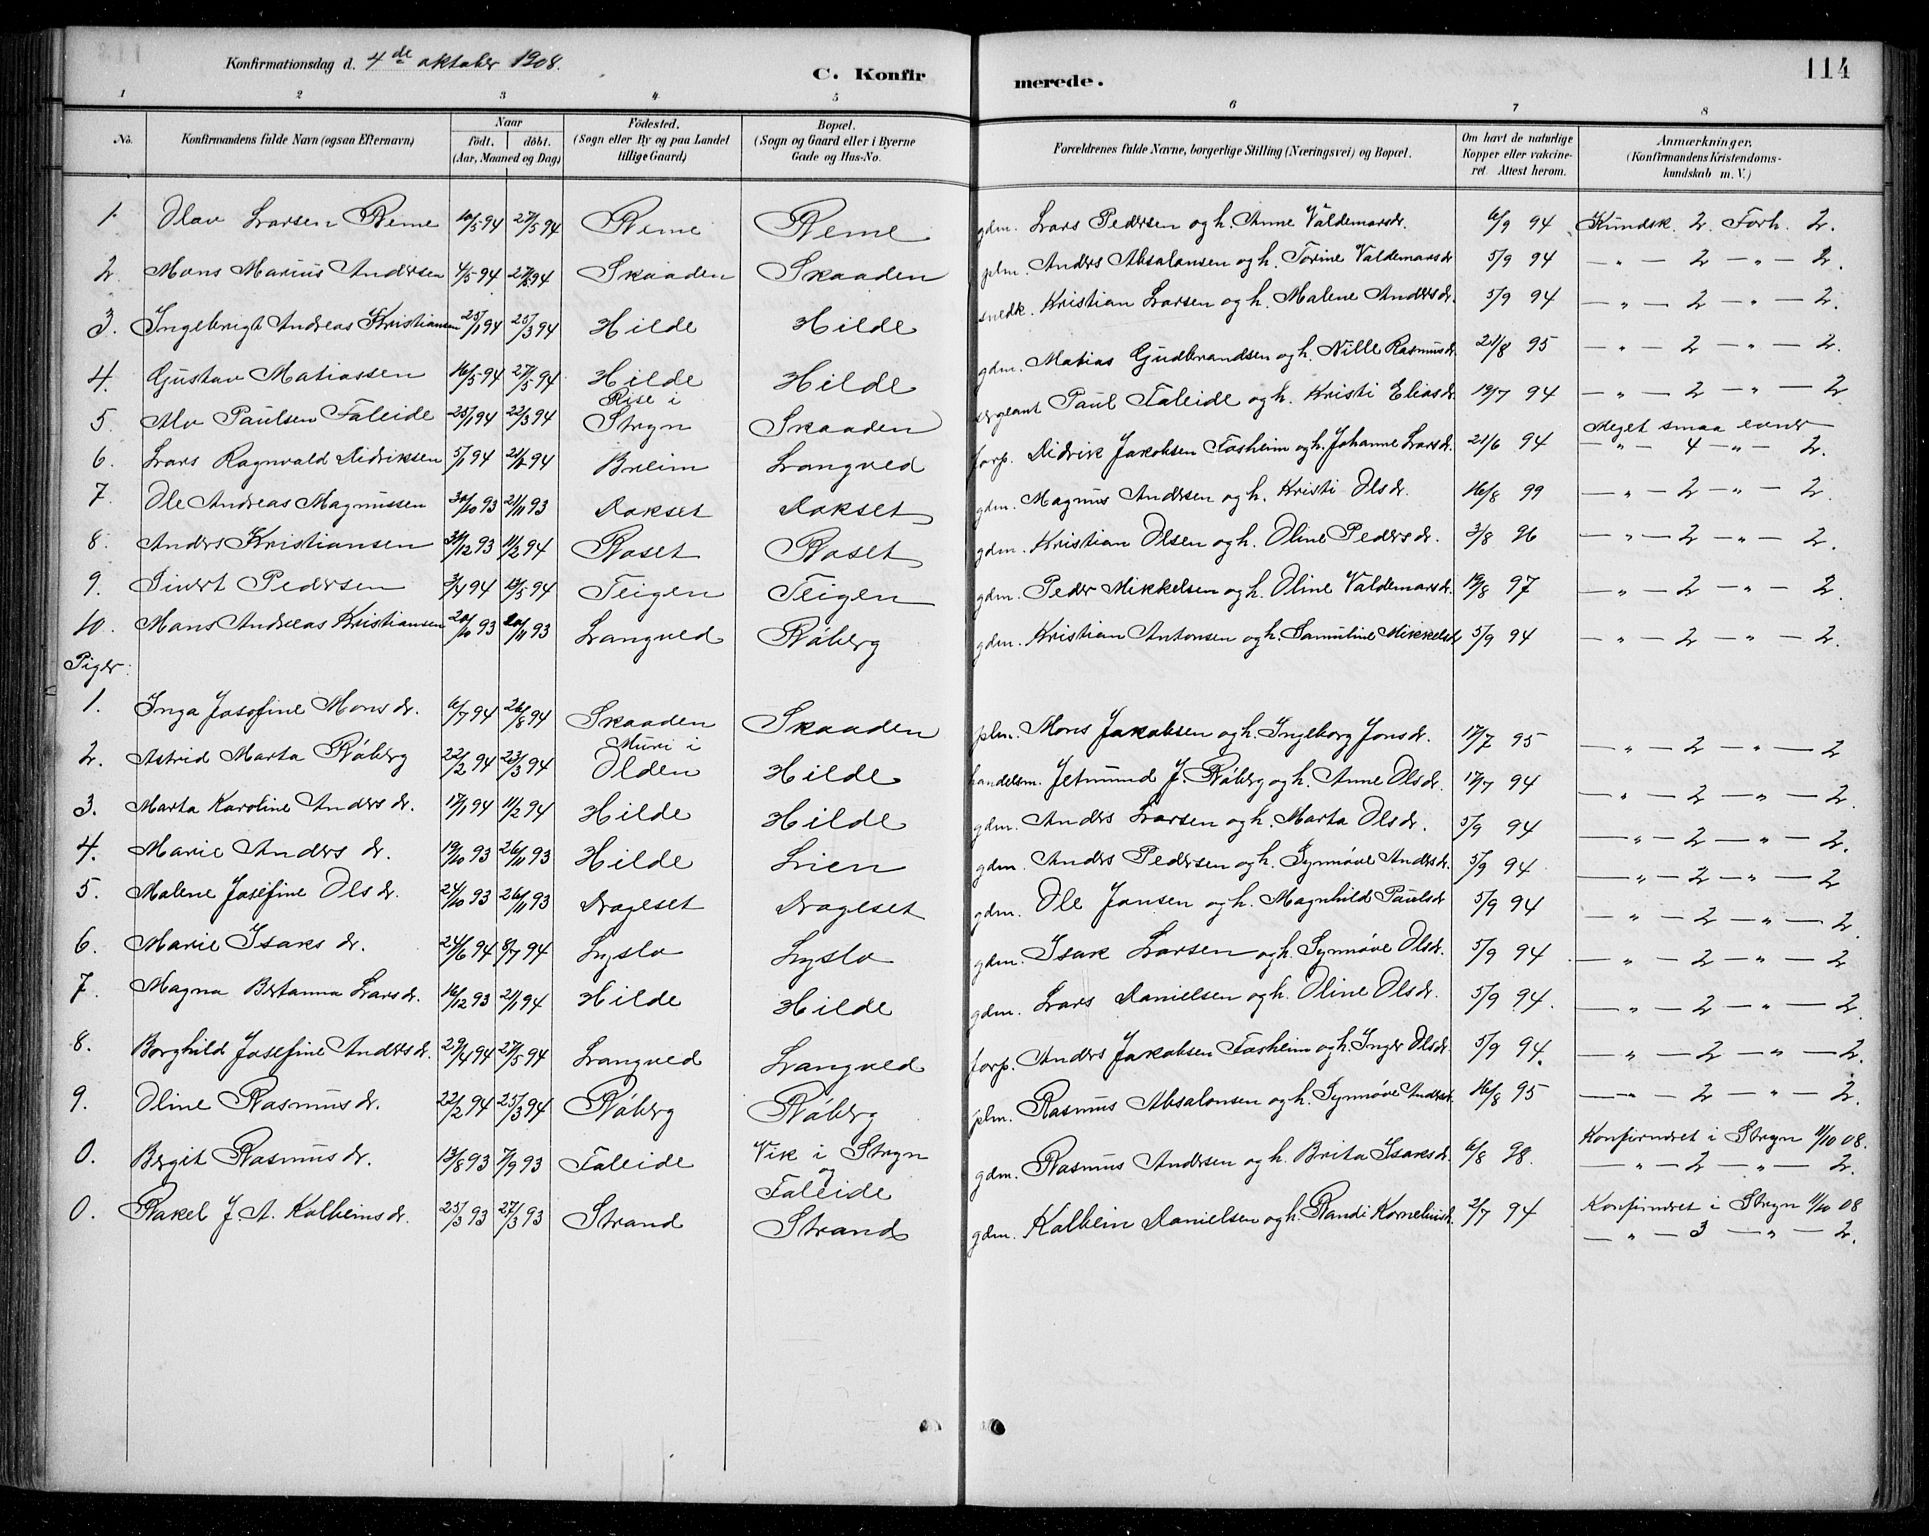 Konfirmationsdag d. 4de oktober 1908.
C. Konfirmerede.
114
1 2 3 4 5 6 7 8
No.
Konfirmandens fulde Navn (ogsaa Efternavn)
Naar
födt. döbt.
(Aar, Maaned og Dag)
Födested.
(Sogn eller By og paa Landet
tillige Gaard)
Bopæl.
(Sogn og Gaard eller i Byerne
Gade og Hus-No.
Forældrenes fulde Navne, borgerlige Stilling (Næringsvei) og Bopæl.
Om havt de naturlige
Kopper eller vakcine-
ret. Attest herom.
Anmærkninger.
(Konfirmandens Kristendoms-
kundskab m. V.)
1. Olav Larsen Reme 10/5 94 27/5 94 Reme Reme gdm. Lars Pedersen og h. Anne Valdemarsdr. 6/9 94 Kundsk. 2. Forh. 2.
2. Mons Marius Andersen 4/5 94 27/5 94 Skaaden Skaaden plm. Anders Absalonsen og h. Torine Valdemarsdr 5/9 94 — " — 2 — " — 2.
3. Ingebrigt Andreas Kristiansen 25/1 94 25/3 94 Hilde Hilde snedk. Kristian Larsen og h. Malene Andersdr. 5/9 94 — " — 2 — " — 2.
4. Gustav Matiassen 16/5 94 27/5 94 Hilde Hilde gdm. Matias Gudbrandsen og h. Nille Rasmusdr. 21/8 95 — " — 2 — " — 2.
5. Alv Paulsen Faleide 25/1 94 22/3 94 Rise i Stryn Skaaden sergeant Paul Faleide og h. Kristi Eliasdr. 19/7 94 — " — 2 — " — 2
6. Lars Ragnvald Didriksen 5/1 94 21/2 94 Breim Langved forp. Didrik Jakobsen Fosheim og h. Johanne Larsdr. 21/6 94 Meget smaa evner — " — 4 — " — 2.
7. Ole Andreas Magnussen 30/10 93 21/11 93 Rokset Rokset gdm. Magnus Andersen og h. Kristi Olsdr. 16/8 99 — " — 2 — " — 2.
8. Anders Kristiansen 31/12 93 11/2 94 Roset Roset gdm. Kristian Olsen og h. Oline Pedersdr. 3/8 96 — " — 2 — " — 2.
9. Sivert Pedersen 3/4 94 13/5 94 Teigen Teigen gdm. Peder Mikkelsen og h. Oline Valdemarsdr. 19/8 97 — " — 2 — " — 2.
10. Mons Andreas Kristiansen 20/10 93 20/11 93 Langved Röberg gdm. Kristian Antonsen og h. Samuline Mikkelsdr 5/9 94 — " — 2 — " — 2.
Piger.
1. Inga Josefine Mons dr. 6/7 94 26/8 94 Skaaden Skaaden plm. Mons Jakobsen og h. Ingeborg Jonsdr. 17/7 95 — " — 2 — " — 2
2. Astrid Marta Röberg 22/2 94 23/3 94 Muri i Olden Hilde handelsm. Jetmund J. Röberg og h. Anne Olsdr. 17/7 94 — " — 2 — " — 2.
3. Marta Karoline Anders dr. 17/1 94 11/2 94 Hilde Hilde gdm. Anders Larsen og h. Marta Olsdr. 5/9 94 — " — 2 — " — 2.
4. Marie Anders dr. 19/10 93 26/11 93 Hilde Lien gdm. Anders Pedersen og h. Synnöve Andersdr. 5/9 94 — " — 2 — " — 2
5. Malene Josefine Ols dr. 24/10 93 26/11 93 Drageset Drageset gdm. Ole Jonsen og h. Magnhild Paulsdr 5/9 94 — " — 2 — " — 2.
6. Marie Isaks dr. 24/6 94 8/7 94 Lyslo Lyslo gdm. Isak Larsen og h. Synnöve Olsdr. 5/9 94 — " — 2 — " — 2
7. Magna Bertanna Lars dr. 16/12 93 21/1 94 Hilde Hilde gdm. Lars Danielsen og h. Oline Olsdr. 5/9 94. — " — 2 — " — 2.
8. Borghild Josefine Anders dr. 29/4 94 27/5 94 Langved Langved forp. Anders Jakobsen Fosheim og h. Inger Olsdr. 5/9 94. — " — 2 — " — 2.
9. Oline Rasmus dr. 22/2 94 25/3 94 Röberg Röberg plm. Rasmus Absalonsen og h. Synnöve Andersdr. 16/8 95 — " — 2 — " — 2.
0. Bergit Rasmus dr. 13/8 93 7/9 93 Faleide Vik i Stryn og Faleide gdm. Rasmus Andersen og h. Brita Isaksdr. 6/8 98. Konfirmeret i Stryn 11/10 08. — " — 2 — " — 2.
0. Rakel J. A. Kolbeins dr. 25/3 93 27/3 93 Strand Strand gdm. Kolbein Danielsen og h. Randi Korneliusdr. 2/7 94 Konfirmeret i Stryn 11/10 08 — " — 3 — " — 2.